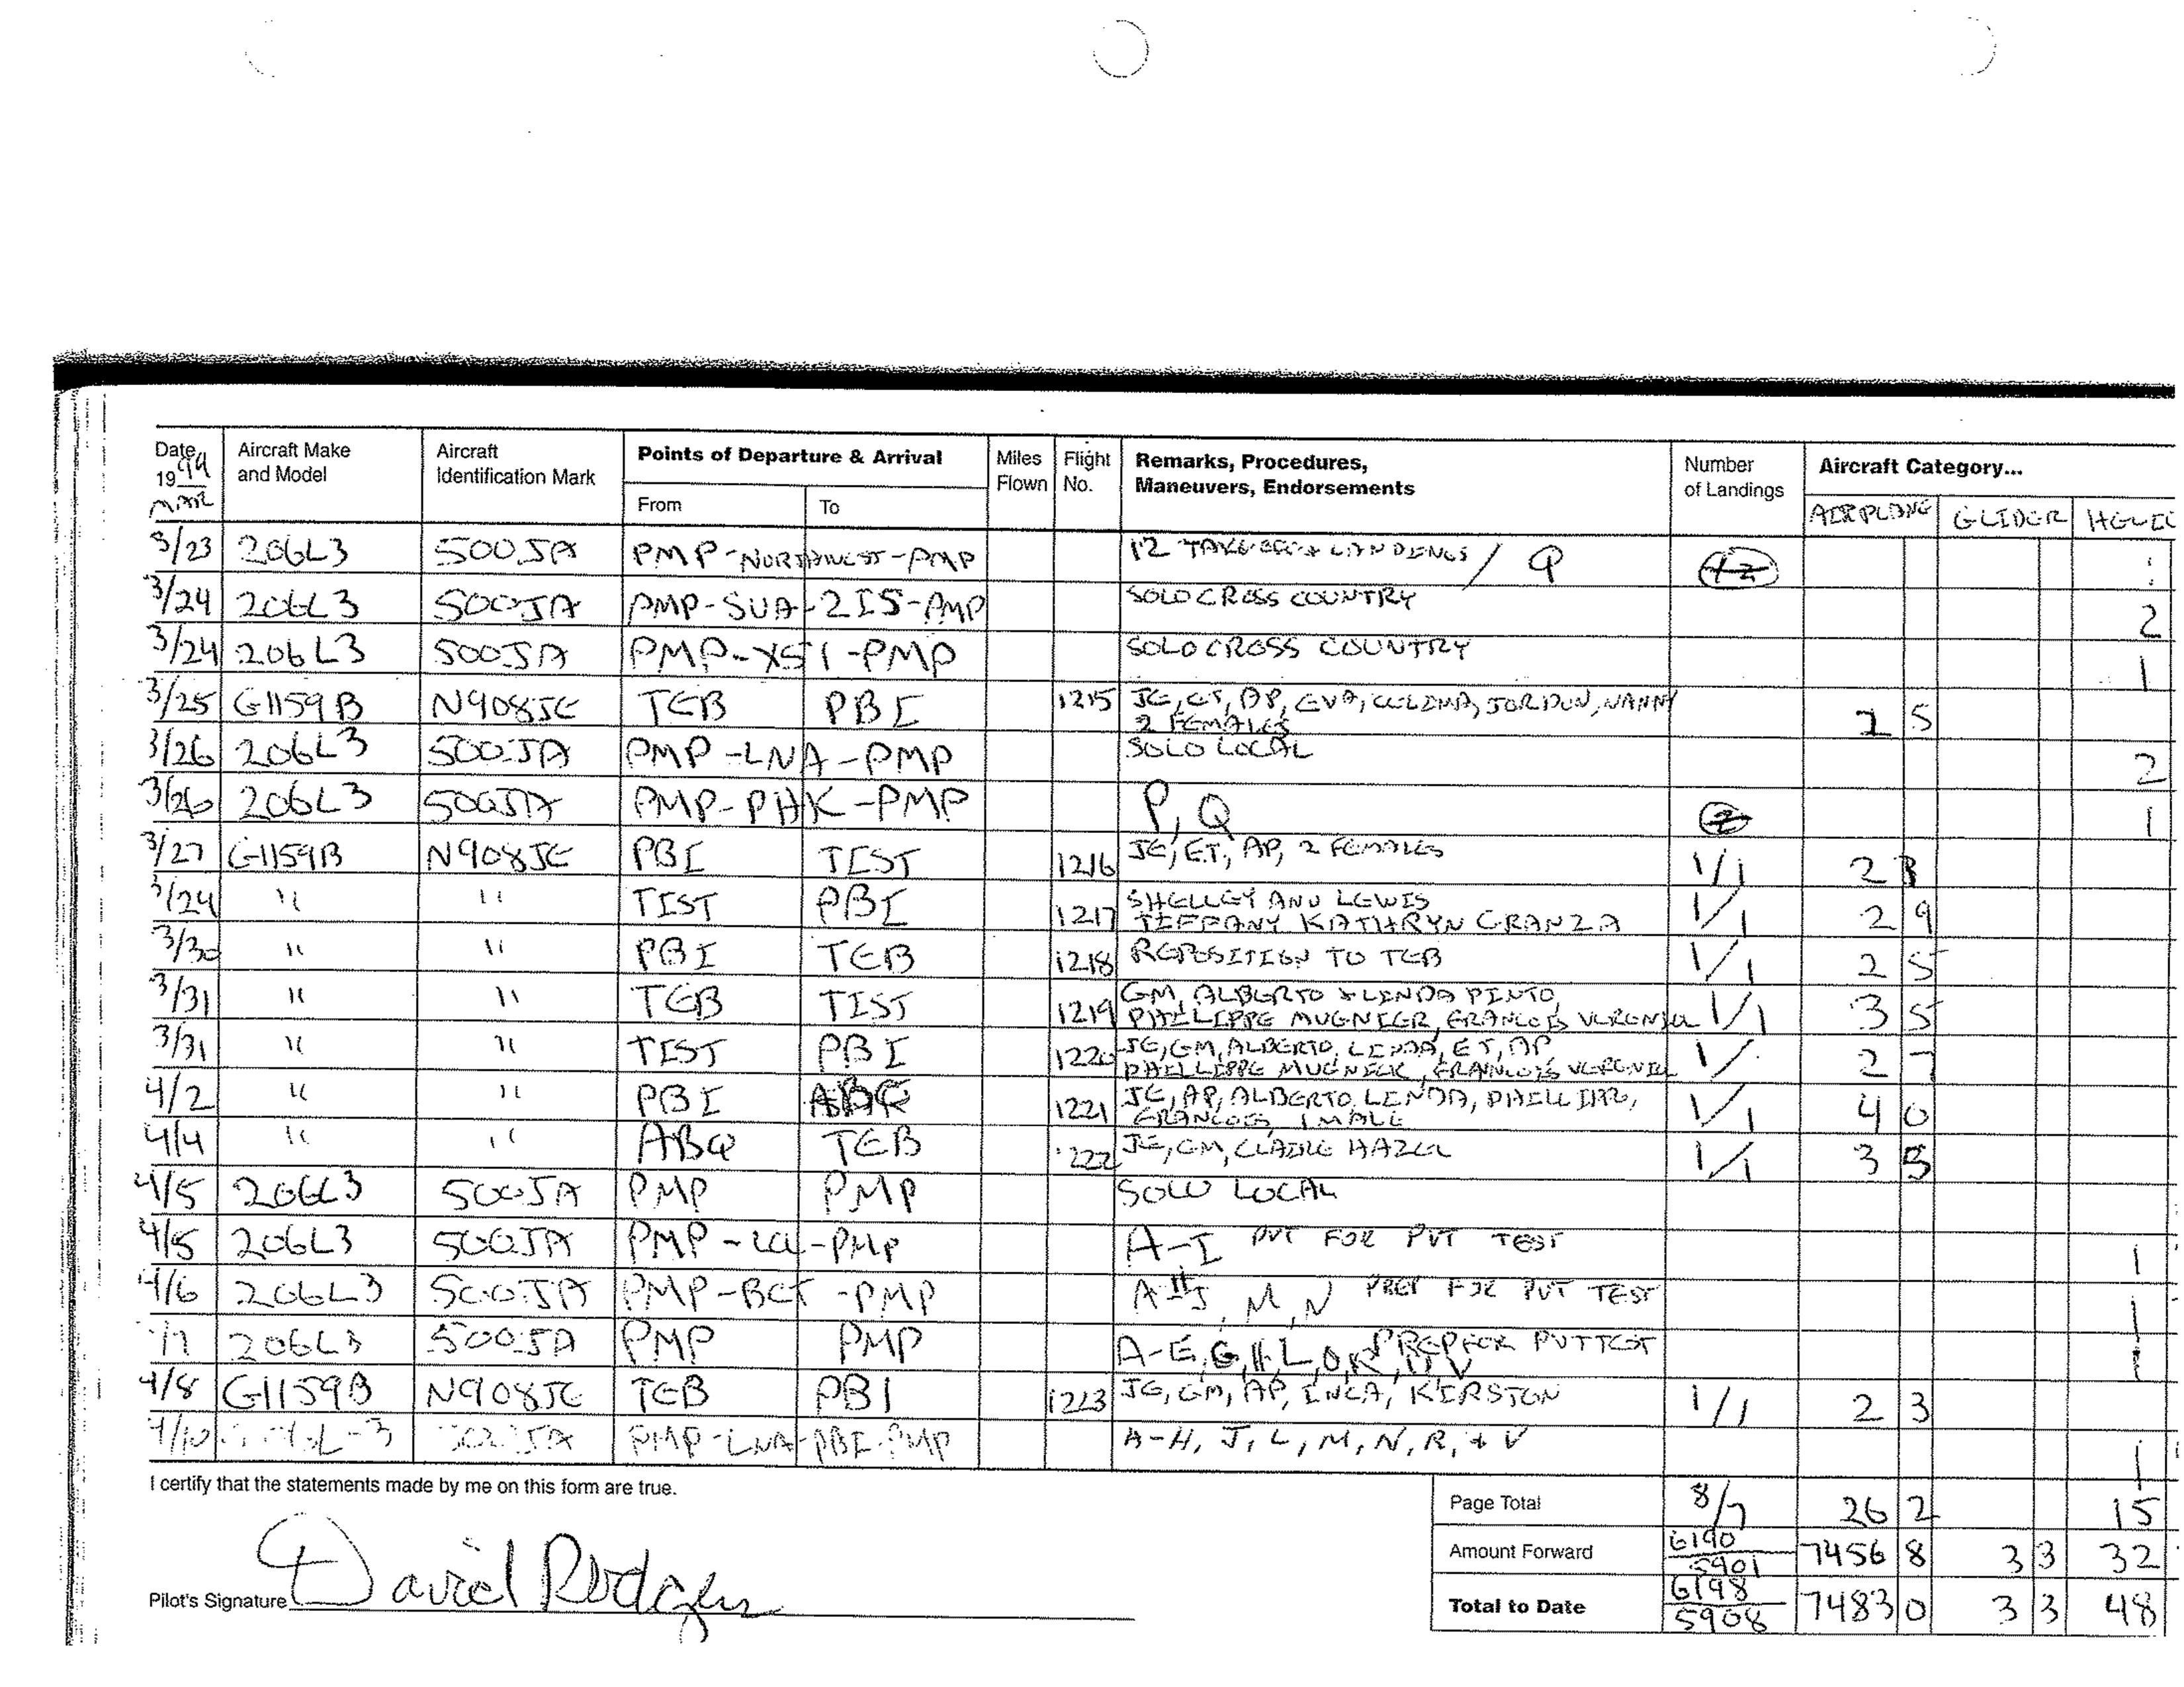 Date Aircraft Make and Model Aircraft Identification Mark Points of Departure & Arrival Miles Flown Flight No. Remarks, Procedures, Maneuvers, Endorsements Number of Landings Aircraft Category...
1999 From To AIRPLANE GLIDER HELIC
MAR
3/23 206L3 500JA PMP-NORTHWEST-PMP 12 TAKEOFF & LANDINGS / Q 12
3/24 206L3 500JA PMP-SUA-2IS-PMP SOLO CROSS COUNTRY 2
3/24 206L3 500JA PMP-X51-PMP SOLO CROSS COUNTRY 1
3/25 G1159B N908JE TEB PBI 1215 JE, ET, AP, EVA, CELINA, JORDUN, NANNY 2 5
2 FEMALES
3/26 206L3 500JA PMP-LNA-PMP SOLO LOCAL 2
3/26 206L3 500JA PMP-PHK-PMP P, Q 2 1
3/27 G1159B N908JE PBI TIST 1216 JE, ET, AP, 2 FEMALES 1/1 2
3/29 " " TIST PBI 1217 SHELLEY ANN LEWIS 1/1 2 9
TIFFANY KATHRYN GRANZA
3/30 " " PBI TEB 1218 REPOSITION TO TEB 1/1 2 5
3/31 " " TEB TIST 1219 GM, ALBERTO & LINDA PINTO, 1/1 3 5
PHILLIPPE MUGNIER, FRANCOIS
3/31 " " TIST PBI 1220 JE, GM, ALBERTO, LINDA, ET, AP 1/ 2 7
PHILLIPPE MUGNIER, FRANCOIS
4/2 " " PBI ABQ 1221 JE, AP, ALBERTO, LINDA, PHILLIPPE, 1/1 4 0
FRANCOIS, 1 MALE
4/4 " " ABQ TEB 1222 JE, GM, CLAIRE HAZEL 1/1 3
4/5 206L3 500JA PMP PMP SOLO LOCAL
4/5 206L3 500JA PMP - -PMP A-I PVT FOR PVT TEST 1
4/6 206L3 500JA PMP-BCT-PMP A-J, M, N PREP FOR PVT TEST 1
/7 206L3 500JA PMP PMP A-E, G, H, L, O, PREP FOR PVT TEST 1
4/8 G1159B N908JE TEB PBI 1223 JE, GM, AP, INCA, KIRSTON 1/1 2 3
4/10 L-3 JA PMP-LNA-PBI-PMP A-H, J, L, M, N, R, + V 1
I certify that the statements made by me on this form are true.
Page Total 8/7 26 2 15
Amount Forward 6190 5901 7456 8 3 3 32
Total to Date 6198 5908 7483 0 3 3 48
Pilot's Signature David Rodgers